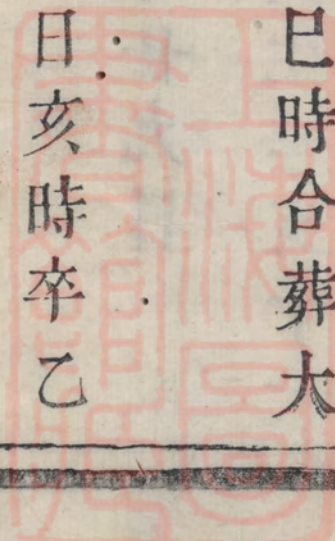 巳時合葬大
日亥時卒乙